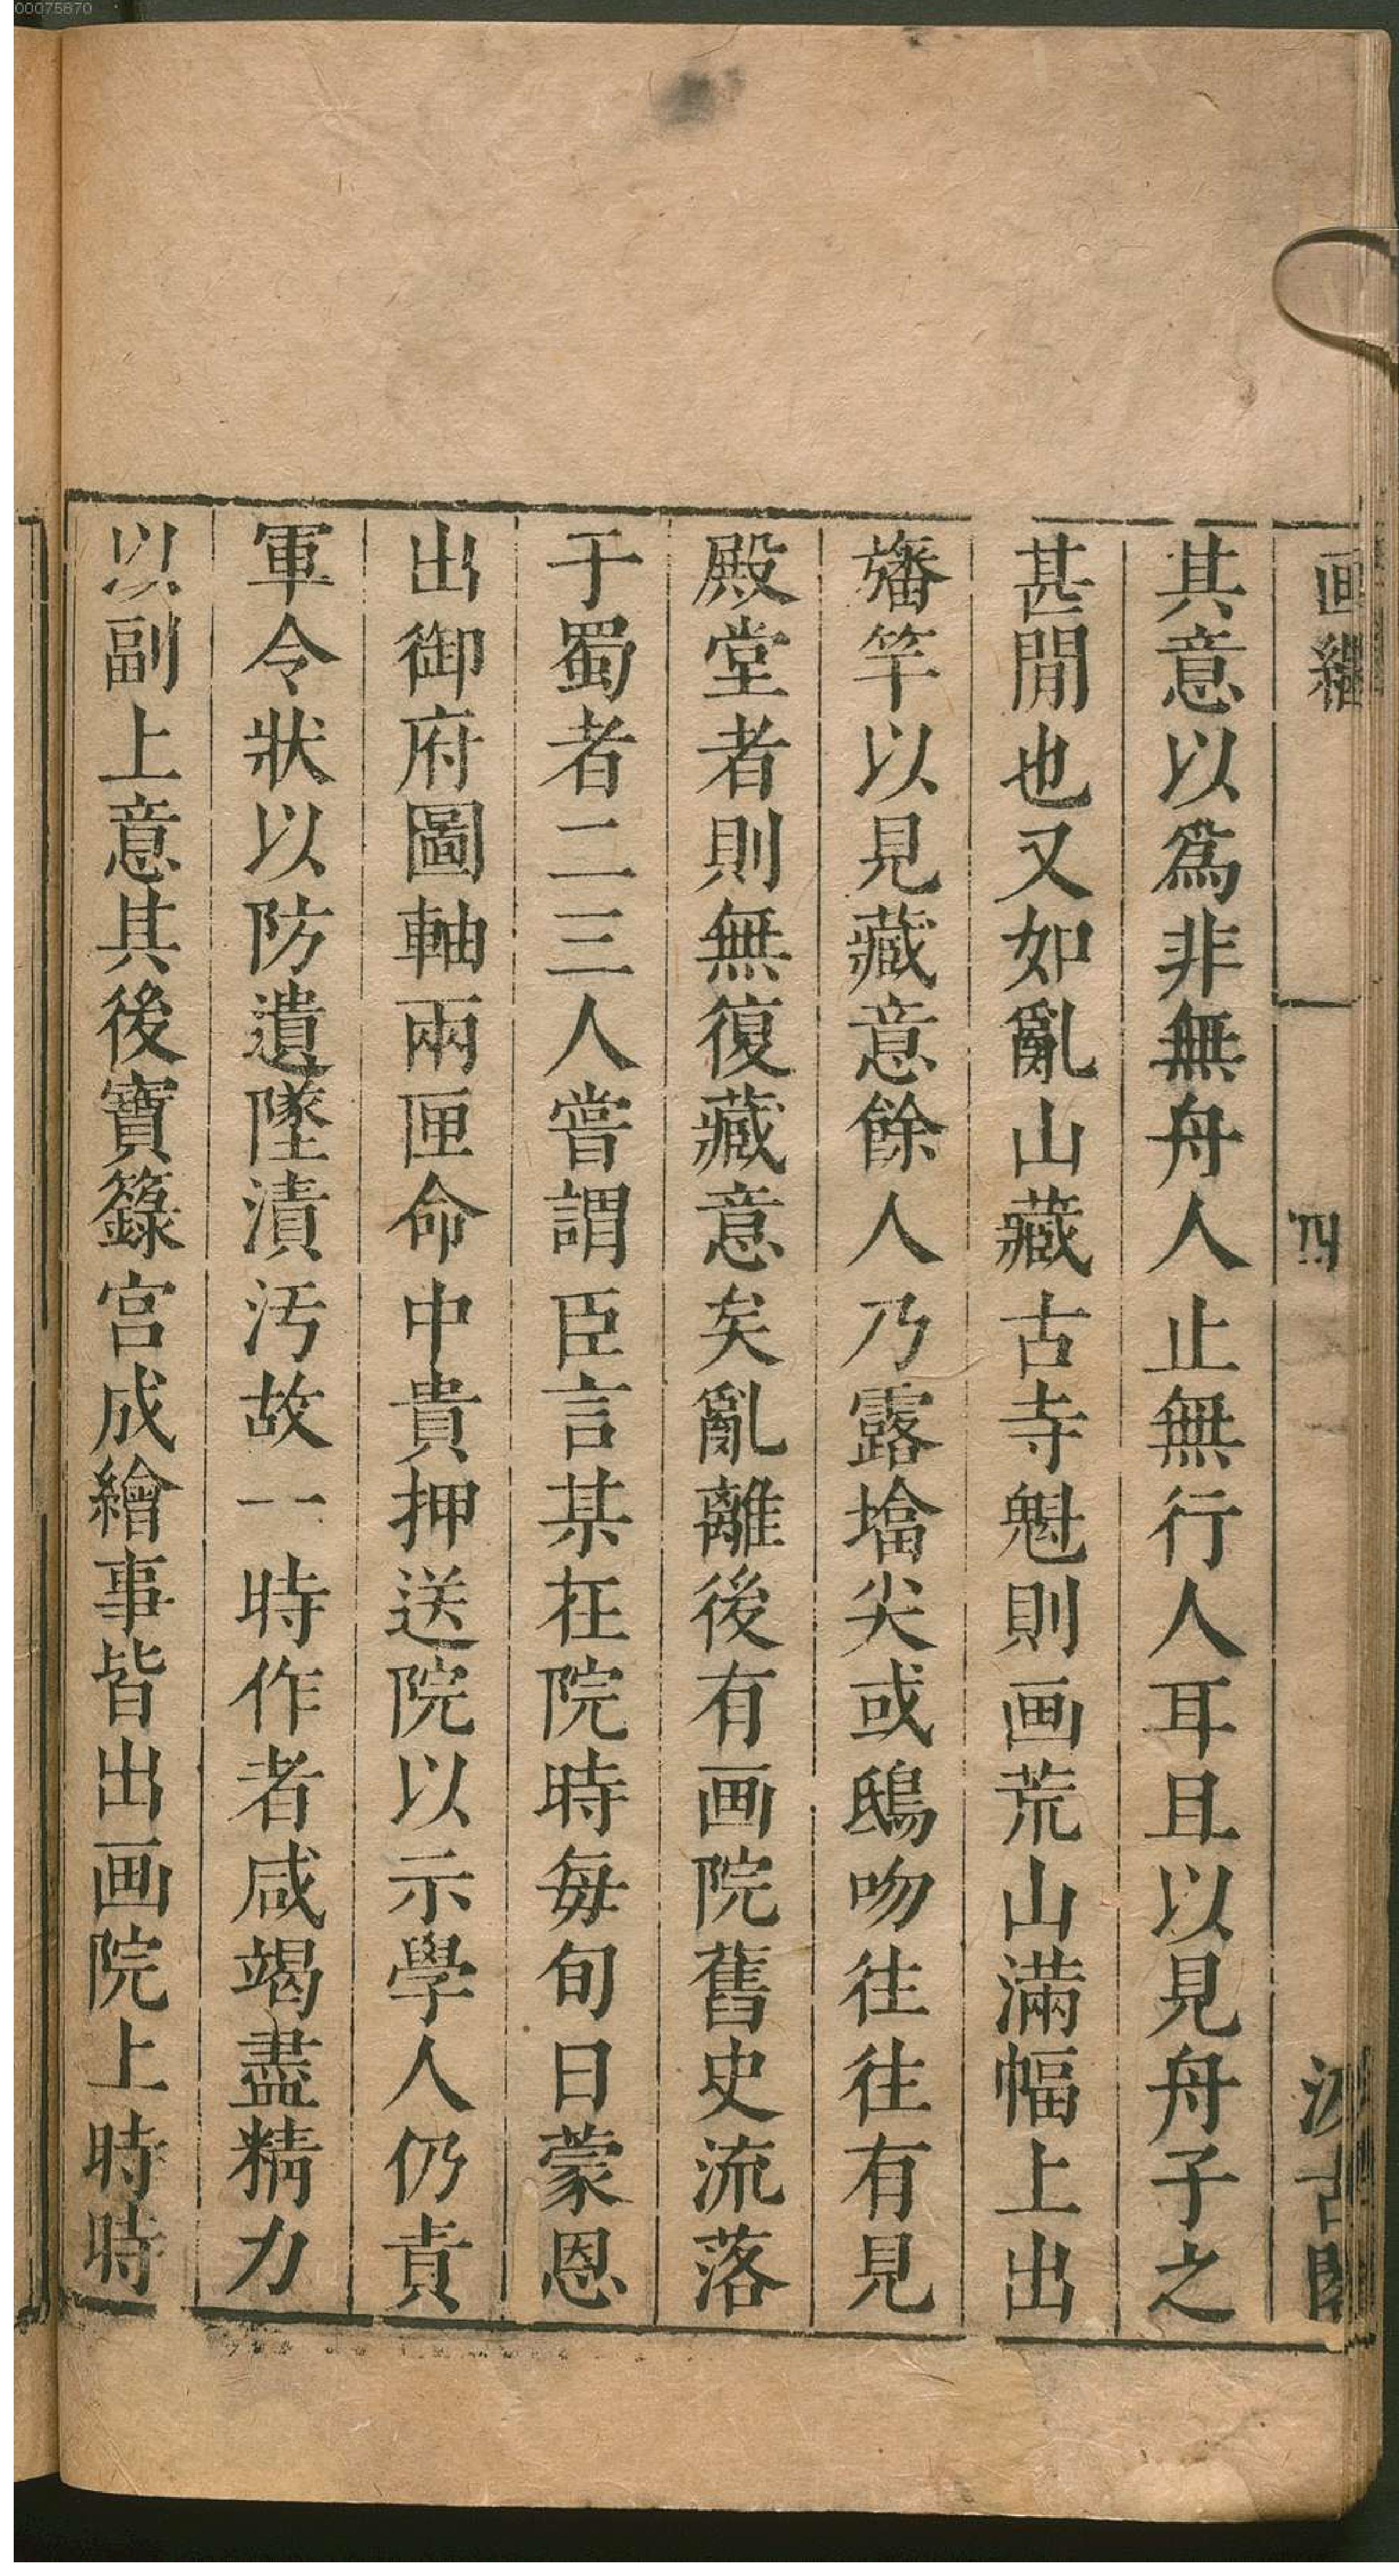 00075870
画繼
四
汲古閣
其意以爲非無舟人止無行人耳且以見舟子之
甚閒也又如亂山藏古寺魁則画荒山滿幅上出
旛竿以見藏意餘人乃露墖尖或鴟吻往往有見
殿堂者則無復藏意矣亂離後有画院舊史流落
于蜀者二三人嘗謂臣言某在院時每旬日蒙恩
出御府圖軸兩匣命中貴押送院以示學人仍責
軍令狀以防遺墜漬汚故一時作者咸竭盡精力
以副上意其後寶籙宮成繪事皆出画院上時時